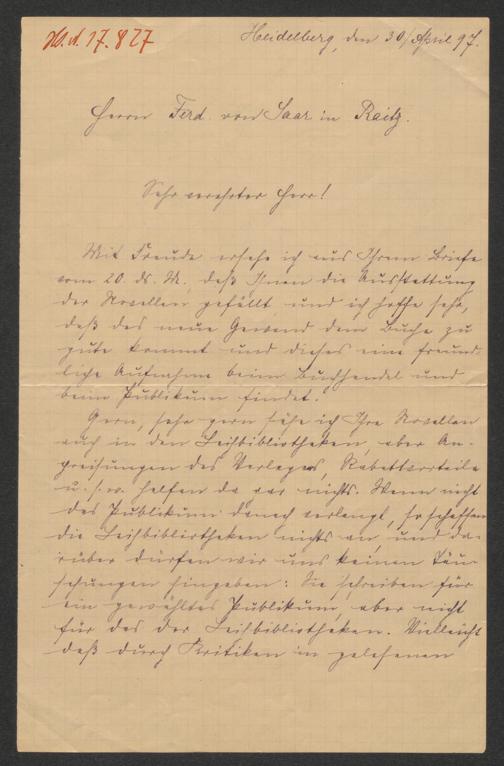 H.A. 17.827
Heidelberg, den 30/April 97.
Herrn Ferd. von Saar in Raitz.
Sehr verehrter Herr!
Mit Freude ersehe ich aus Ihrem Briefe
vom 20. ds. M., daß Ihnen die Ausstattung
der Novellen gefällt und ich hoffe sehr,
daß das neue Gewand dem Buche zu
gute kommt und dieses eine freund-
liche Aufnahme beim Buchhandel und
beim Publikum findet.
Gern, sehr gern sähe ich Ihre Novellen
auch in den Leihbibliotheken, aber An-
preisungen des Verlegers, Rabattvorteile
u.s.w. helfen da gar nichts. Wenn nicht
das Publikum danach verlangt, so schaffen
die Leihbibliotheken nichts an, und da-
rüber dürfen wir uns keinen Täu-
schungen hingeben: Sie schreiben für
ein gewähltes Publikum, aber nicht
für das der Leihbibliotheken. Vielleicht
daß durch Kritiken in gelesenen